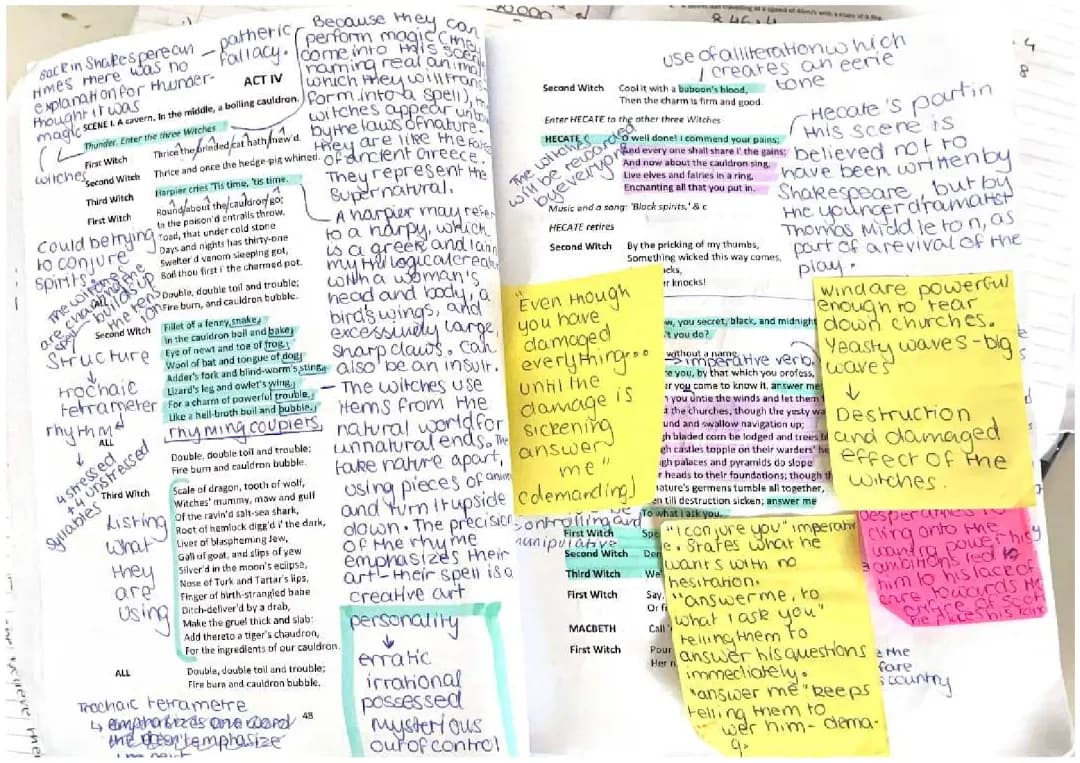 Back in Shakesperean
times there was no
explanation for thunder-
thought it was
magic
pathetic
fallacy.
witches
ACT IV
SCENE I. A cavern. In the middle, a boiling cauldron.
Thunder. Enter the three Witches
First Witch Thrice the brinded cat hath mew'd.
Second Witch Thrice and once the hedge-pig whined.
Third Witch Harpier cries 'Tis time, 'tis time.
First Witch Round about the cauldron go;
In the poison'd entrails throw.
Toad, that under cold stone
Days and nights has thirty-one
Swelter'd venom sleeping got,
Boil thou first i' the charmed pot.
ALL Double, double toil and trouble;
Fire burn, and cauldron bubble.
Second Witch Fillet of a fenny snake,
In the cauldron boil and bake;
Eye of newt and toe of frog,
Wool of bat and tongue of dog,
Adder's fork and blind-worm's sting,
Lizard's leg and owlet's wing,
For a charm of powerful trouble,
Like a hell-broth boil and bubble.
rhyming couplets
ALL Double, double toil and trouble;
Fire burn and cauldron bubble.
Third Witch Scale of dragon, tooth of wolf,
Witches' mummy, maw and gulf
Of the ravin'd salt-sea shark,
Root of hemlock digg'd i' the dark,
Liver of blaspheming Jew,
Gall of goat, and slips of yew
Silver'd in the moon's eclipse,
Nose of Turk and Tartar's lips,
Finger of birth-strangled babe
Ditch-deliver'd by a drab,
Make the gruel thick and slab:
Add thereto a tiger's chaudron,
For the ingredients of our cauldron.
ALL Double, double toil and trouble;
Fire burn and cauldron bubble.
48
could be trying
to conjure
spirits.
The witches
are chanting
Structure
trochaic
tetrameter
rhythm
4 stressed
+ 4 unstressed
syllables
Listing
what
they
are
using
Trochaic tetrametre
emphasizes one word
emphasize
Because they can
perform magic (they
come into this scene
naming real animals
which they will trans-
form into a spell), the
witches appear unbound
by the laws of nature.
They are like the fates
of ancient Greece.
They represent the
supernatural.
A harpier may refer
to a harpy, which
is a greek and latin
mythological creature
with a woman's
head and body, a
bird's wings, and
excessively large,
sharp claws. Can
also be an insult.
The witches use
items from the
natural world for
unnatural ends. The
take nature apart,
using pieces of animal
and turn it upside
down. The precision
of the rhyme
emphasizes their
art - their spell is a
creative art
personality
erratic
irrational
possessed
mysterious
out of control
use of alliteration which
creates an eerie
tone
Second Witch Cool it with a baboon's blood,
Then the charm is firm and good.
Enter HECATE to the other three Witches
HECATE O well done! I commend your pains;
And every one shall share i' the gains;
And now about the cauldron sing,
Live elves and fairies in a ring,
Enchanting all that you put in.
The witches
will be rewarded
by everyone
Music and a song: 'Black spirits,' & c
HECATE retires
Second Witch By the pricking of my thumbs,
Something wicked this way comes.
knocks!
Hecate's part in
this scene is
believed not to
have been written by
Shakespeare, but by
the younger dramatist
Thomas Middleton, as
part of a revival of the
play.
you secret, black, and midnight
you do?
without a name.
imperative verb.
you, by that which you profess,
you come to know it, answer me
you untie the winds and let them
the churches, though the yesty
and swallow navigation up;
bladed corn be lodged and trees
castles topple on their warders'
palaces and pyramids do slope
heads to their foundations; though
nature's germens tumble all together,
till destruction sicken; answer me
To what I ask you.
controlling and
manipulative
First Witch
Second Witch
Third Witch
First Witch Say,
MACBETH Call
First Witch Pour
"Even though
you have
damaged
everything...
until the
damage is
sickening
answer
me"
(demanding)
Wind are powerful
enough to tear
down churches.
Yeasty waves - big
waves
Destruction
and damaged
effect of the
witches.
"I conjure you" imperativ
e. States what he
wants with no
hesitation.
"answer me, to
what I ask you"
telling them to
answer his questions
immediately.
"answer me" keeps
telling them to
wer him - dema-
cling onto the
power his
ambitions led to
him to his lack of
care towards
the
country